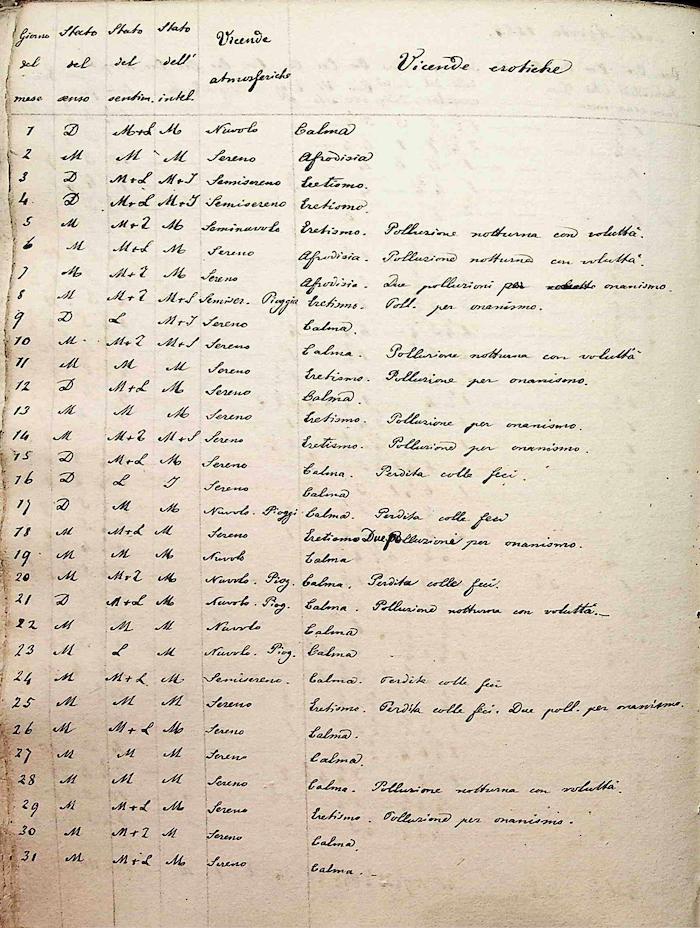 Giorno Stato Stato Stato Vicende Vicende erotiche
del del del dell' atmosferiche
mese senso sentim. intel.
1 D M+L M Nuvolo Calma
2 M M M Sereno Afrodisia
3 D M+L M+I Semisereno Eretismo.
4 D M+L M+I Semisereno Eretismo.
5 M M+I M Seminuvolo Eretismo. Polluzione notturna con voluttà.
6 M M+L M Sereno Afrodisia. Polluzione notturna con voluttà.
7 M M+I M Sereno Afrodisia. Due polluzioni per onanismo.
8 M M+I M+L Semiser. Pioggia Eretismo. Poll. per onanismo.
9 D L M+I Sereno Calma.
10 M M+I M+I Sereno Calma. Polluzione notturna con voluttà
11 M M M Sereno Eretismo. Polluzione per onanismo.
12 D M+L M Sereno Calma.
13 M M M Sereno Eretismo. Polluzione per onanismo.
14 M M+I M+I Sereno Eretismo. Polluzione per onanismo.
15 D M+L M Sereno Calma. Perdita colle feci.
16 D L I Sereno Calma
17 D M M Nuvolo. Pioggi Calma. Perdita colle feci
18 M M+L M Sereno Eretismo Due Polluzioni per onanismo.
19 M M M Nuvolo Calma
20 M M+I M Nuvolo. Piog. Calma. Perdita colle feci.
21 D M+L M Nuvolo. Piog. Calma. Polluzione notturna con voluttà.
22 M M M Nuvolo Calma
23 M L M Nuvolo. Piog. Calma
24 M M+L M Semisereno. Calma. Perdita colle feci
25 M M M Sereno Eretismo. Perdita colle feci. Due poll. per onanismo.
26 M M+L M Sereno Calma.
27 M M M Sereno Calma.
28 M M M Sereno Calma. Polluzione notturna con voluttà.
29 M M+L M Sereno Eretismo. Polluzione per onanismo.
30 M M+I M Sereno Calma.
31 M M+L M Sereno Calma.